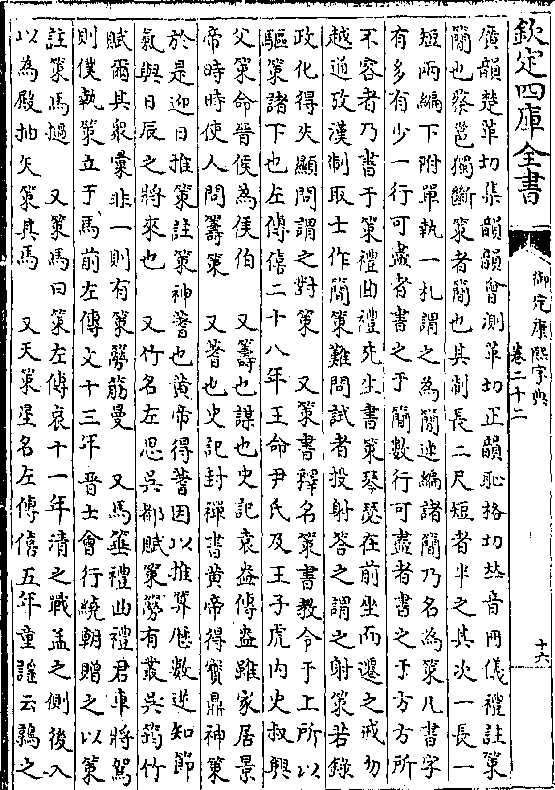 欽定四庫全書
御定康熙字典
卷二十二
十六
廣韻楚革切集韻韻會測革切正韻恥格切𠀤音冊儀禮註策
簡也蔡邕獨斷策者簡也其制長二尺短者半之其次一長一
短兩編下附單執一札謂之為簡連編諸簡乃名為策凡書字
有多有少一行可盡者書之于簡數行可盡者書之于方方所
不容者乃書于策禮曲禮先生書策琴瑟在前坐而遷之戒勿
越通考漢制取士作簡策難問試者投射答之謂之射策若錄
政化得失顯問謂之對策 又策書釋名策書教令于上所以
驅策諸下也左傳僖二十八年王命尹氏及王子虎内史叔興
父策命晉侯為侯伯 又籌也謀也史記袁盎傳盎雖家居景
帝時時使人問籌策 又蓍也史記封禪書黄帝得寶鼎神策
於是迎日推策註策神蓍也黄帝得蓍因以推算厯數逆知節
氣與日辰之將來也 又竹名左思吳都賦策簩有叢吳筠竹
賦爾其衆彚非一則有策簩筋曼 又馬箠禮曲禮君車將駕
則僕執策立于馬前左傳文十三年晉士會行繞朝贈之以策
註策馬檛 又策馬曰策左傳哀十一年清之戰孟之側後入
以為殿抽矢策其馬 又天策星名左傳僖五年童謡云鶉之